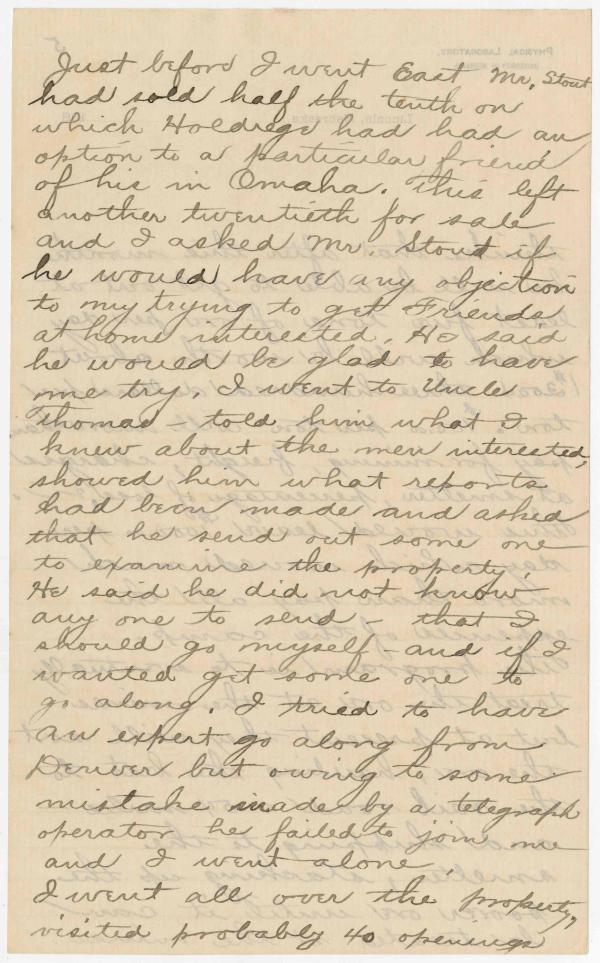 Just before I went East Mr. Stout
had sold half the tenth on
which Holdrege had had an
option to a particular friend
of his in Omaha. This left
another twentieth for sale
and I asked Mr. Stout if
he would have any objection
to my trying to get Friends
at home interested. He said
he would be glad to have
me try. I went to Uncle
Thomas – told him what I
knew about the men interested,
showed him what reports
had been made and asked
that he send out some one
to examine the property.
He said he did not know
any one to send – that I
should go myself – and if I
wanted get some one to
go along. I tried to have
an expert go along from
Denver but owing to some
mistake made by a telegraph
operator he failed to join me
and I went alone.
I went all over the property,
visited probably 40 openings